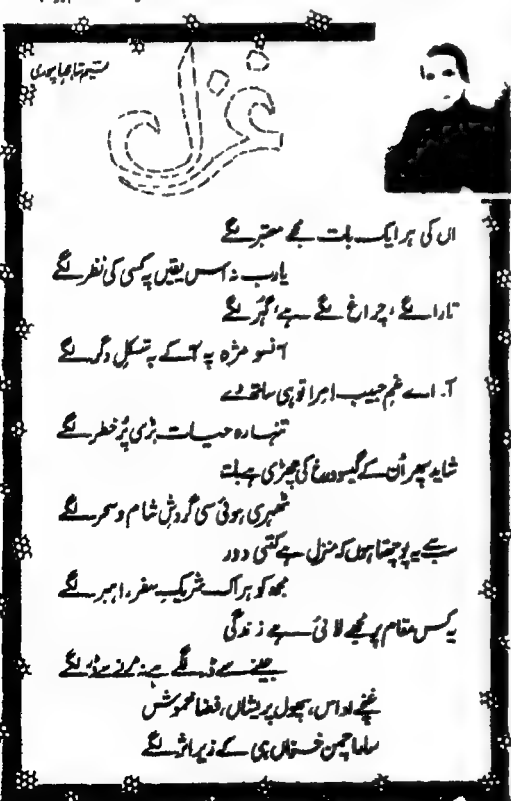 غزل
ان کی ہر ایک بات مجھے معتبر لگے
یارب نہ اس یقیں پہ کسی کی نظر لگے
تارا لگے، چراغ لگے ہے، گہر لگے
آنسو مژہ پہ آکے بہ شکل دگر لگے
آ۔ اے غمِ حبیب! مرا تو ہی ساتھ دے
تنہا رہ حیات بڑی پُر خطر لگے
شاید پھر اُن کے گیسو و رخ کی چھڑی ہے بات
ٹھہری ہوئی سی گردشِ شام و سحر لگے
سب سے یہ پوچھتا ہوں کہ منزل ہے کتنی دور
مجھ کو ہر اک شریک سفر، راہبر لگے
یہ کس مقام پر مجھے لائی ہے زندگی
جینے سے ڈر لگے ہے نہ مرنے سے ڈر لگے
غنچے اداس، پھول پریشاں، فضا خموش
سارا چمن خزاں ہی کے زیر اثر لگے